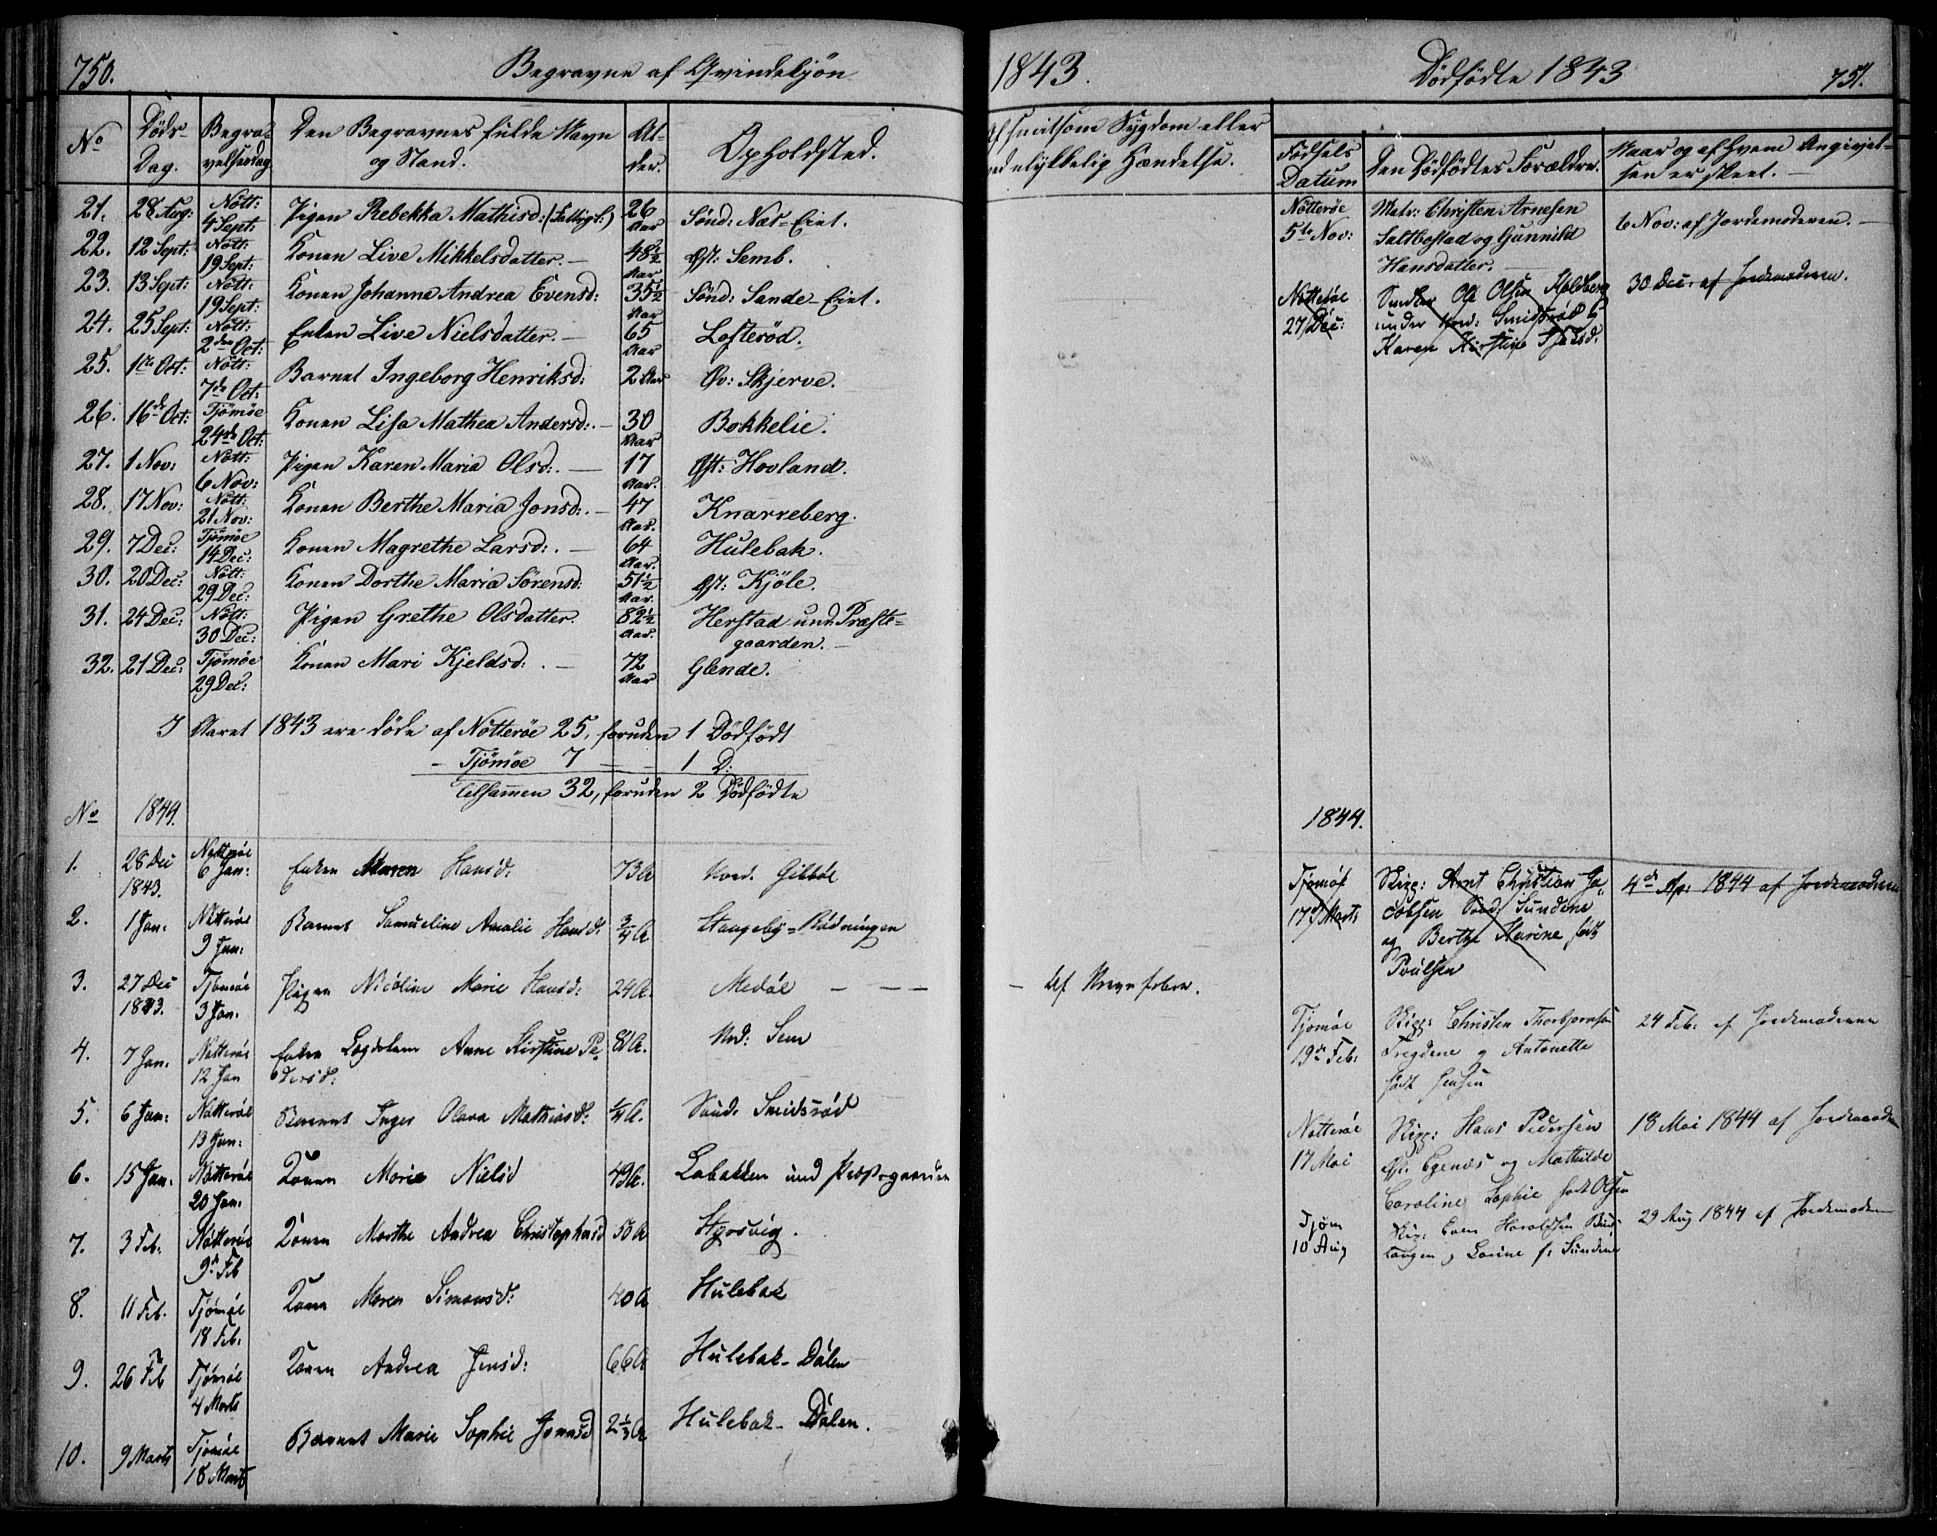 750. Begravne af Qvindekjön
No Döds-Dag. Begravelsesdag Den Begravnes fulde Navn og Stand. Alder. Opholdsted.
21. 28 Aug: Nött: 4 Sept: Pigen Rebekka Mathisd: (Fattigl:) 26 Aar Sönd: Næs-Eiet.
22. 12 Sept: Nött: 19 Sept: Konen Live Mikkelsdatter. — 48½ Aar Øst: Semb.
23. 13 Sept: Nött: 19 Sept: Konen Johanne Andrea Evensd: 35½ Aar Sönd: Sande Eiet.
24. 25 Sept: Nött: 2den Oct: Enken Live Nielsdatter. — 65 Aar Lofteröd.
25. 1te Oct: Nött: 7de Oct: Barnet Ingeborg Henriksd: 2 Aar Öv: Skjerve.
26. 16de Oct: Tjömöe 24de Oct: Konen Lisa Mathea Andersd: — 30 Aar Bokkelie.
27. 1 Nov: Nött: 6 Nov: Pigen Karen Maria Olsd: — 17 Aar. Øst: Hovland.
28. 17 Nov: Nött: 21 Nov: Konen Berthe Maria Jonsd: — 47 Aar. Knarreberg.
29. 7 Dec: Tjömöe 14 Dec: Konen Magrethe Larsd: — 64 Aar. Hulebak.
30. 20 Dec: Nött: 29 Dec: Konen Dorthe Maria Sörensd: 51½ Aar. Øst: Kjöle.
31. 24 Dec: Nött: 30 Dec: Pigen Grethe Olsdatter. 82½ Aar. Herstad und: Præste-
gaarden. —
32. 21 Dec: Tjömöe 29 Dec: Konen Mari Kjeldsd: — 72 Aar Glende.
I Aaret 1843 ere döde af Nötteröe 25, foruden 1 Dödfödt
- Tjömöe 7 — 1 D:
Tilsammen 32, foruden 2 Dödfödte
No 1844.
1. 28 Dec 1843. Nötteröe 6 Jan: Enken Maren Hansd: 73 A Nord. Gibböe
2. 1 Jan: Nötteröe 9 Jan: Barnet Samueline Amalie Hansd: ¾ A. Stangeby-Rødningen
3. 27 Dec 1843. Tjömöe 3 Jan. Pigen Nicoline Marie Hansd: 24 A. Medöe — — —
4. 7 Jan. Nötteröe 12 Jan Enken Lægdslem Anne Kirstine Pe-
dersd: 81 A. Nd: Sem
5. 6 Jan: Nötteröe 13 Jan: Barnet Inger Olava Mathiasd: ¼ A. Sönd. Smidsröd
6. 15 Jan. Nötteröe 20 Jan: Konen Maria Nielsd 49 A. Labakken und Præstegaarden
7. 3 Feb. Nötteröe 9de Feb Konen Marthe Andrea Christophersd 50 A Styrsvig.
8. 11 Feb. Tjömöe 18 Feb. Konen Maren Simonsd: 40 A Hulebak
9. 26 Feb Tjömöe 4 Marts Konen Andrea Jensd: 66 A Hulebak-Dalen
10. 9 Marts Tjömöe 18 Marts Barnet Marie Sophie Jonasd 2⅓ A Hulebak-Dalen.
1843. Dödfödte 1843 751.
Af smitsom Sygdom eller
ved ulykkelig Hændelse.
Födsels Datum Den Dödfödtes Forældre. Naar og af hvem Angivel-
sen er skeet. —
Nötteröe 5te Nov: Matr: Christen Arnesen
Saltbostad og Gunnild
Hansdatter. — 6 Nov: af Jordemoderen. —
Nötteröe 27 Dec: Snedker Ole Olsen Holdberg
under Nord: Smidsröd &
Karen Kirstine 30 Dec. af Jordemoderen.
1844.
Tjömöe 17 Marts Skipp: Arnt Christian Ja-
cobsen Sönd: Sundene
og Berthe Karine födt
Poulsen 4de Ap: 1844 af Jordemoderen
- Af Nervefeber.
Tjömöe 19de Feb: Skipp: Christen Thorbjörnsen
Fregdene og Antonette
födt Jensen 24 Feb. af Jordemoderen
Nötteröe 17 Mai Skipp: Hans Pedersen
Øst: Egenæs og Mathilde
Caroline Sophie födt Olsen 18 Mai 1844 af Jordemoderen
Tjöm 10 Aug Skip: Even Haraldsen
og Lovine f. Sundene 29 Aug 1844 af Jordemoderen